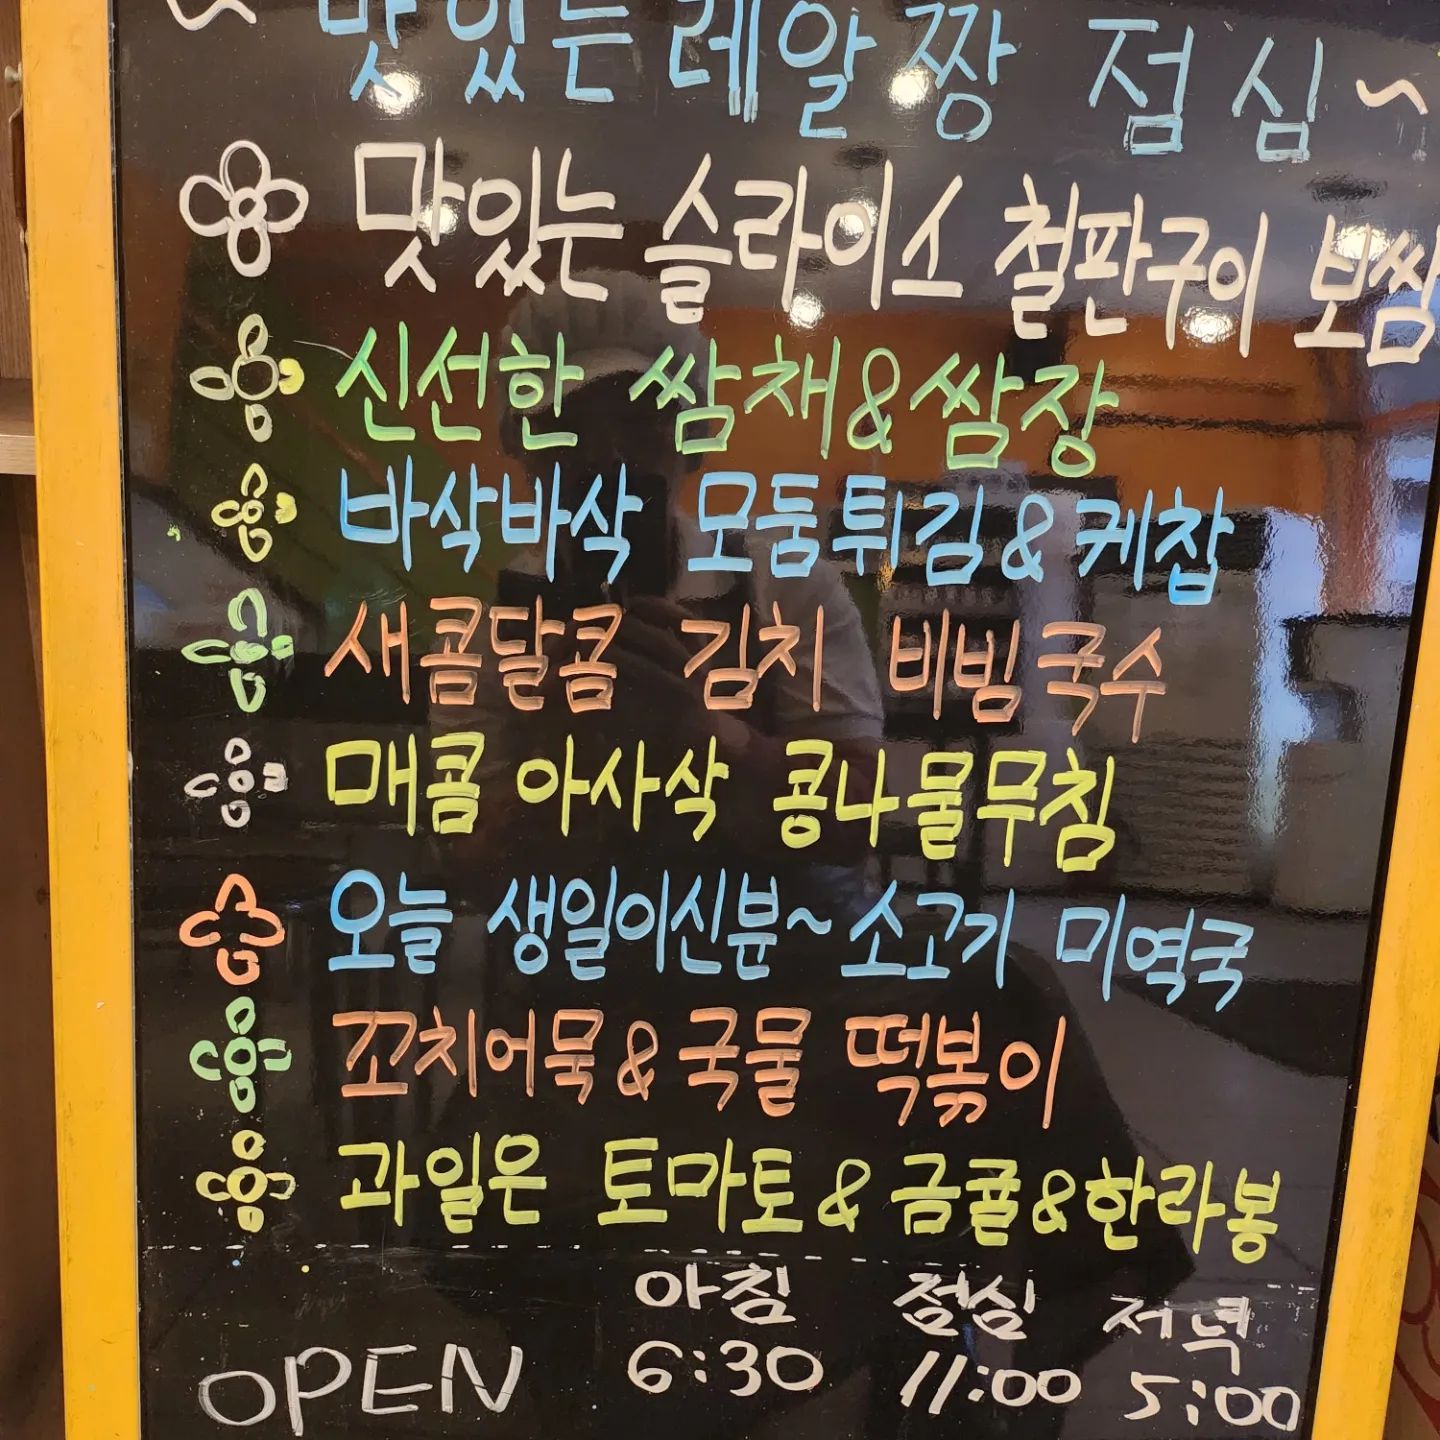 ~ 맛있는 레알 짱 점심~
맛있는 슬라이스 철판구이 보쌈
신선한 쌈채&쌈장
바삭바삭 모둠튀김&케찹
새콤달콤 김치 비빔국수
매콤 아사삭 콩나물무침
오늘 생일이신분~소고기 미역국
꼬치어묵&국물 떡볶이
과일은 토마토&금귤&한라봉
아침 점심 저녁
OPEN 6:30 11:00 5:00